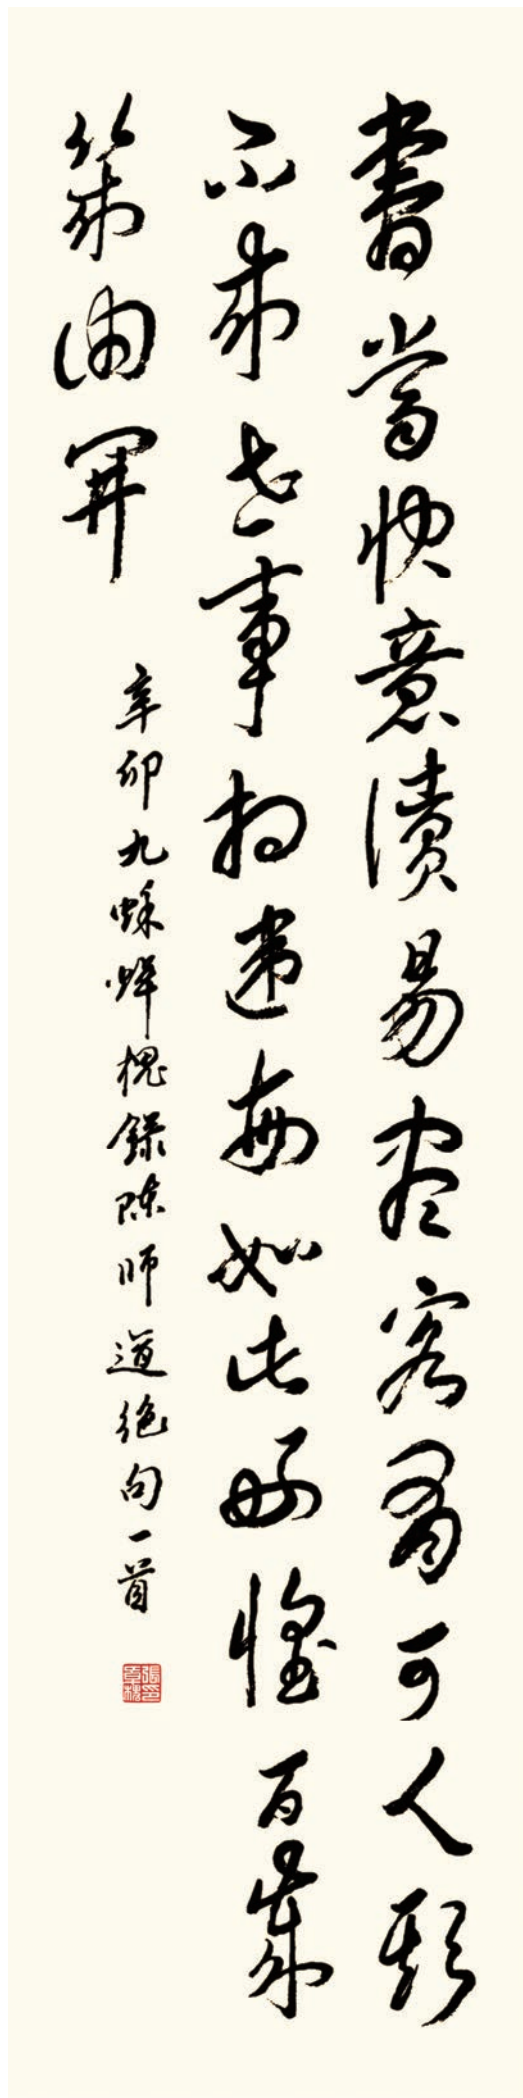 書當快意讀易盡客有可人期
不來世事相違每如此好懷百歲
幾回開
辛卯九秌槐錄陳師道絕句一首